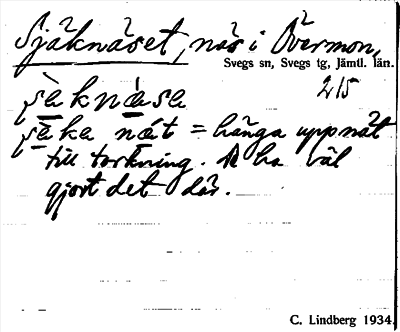 Sjäknäset, näs i Övermon,
Svegs sn, Svegs tg, Jämtl. län.
215
ʂäknäsa
ʂäka nät = hänga upp nät
till torkning. De ha väl
gjort det där.
C. Lindberg 1934.